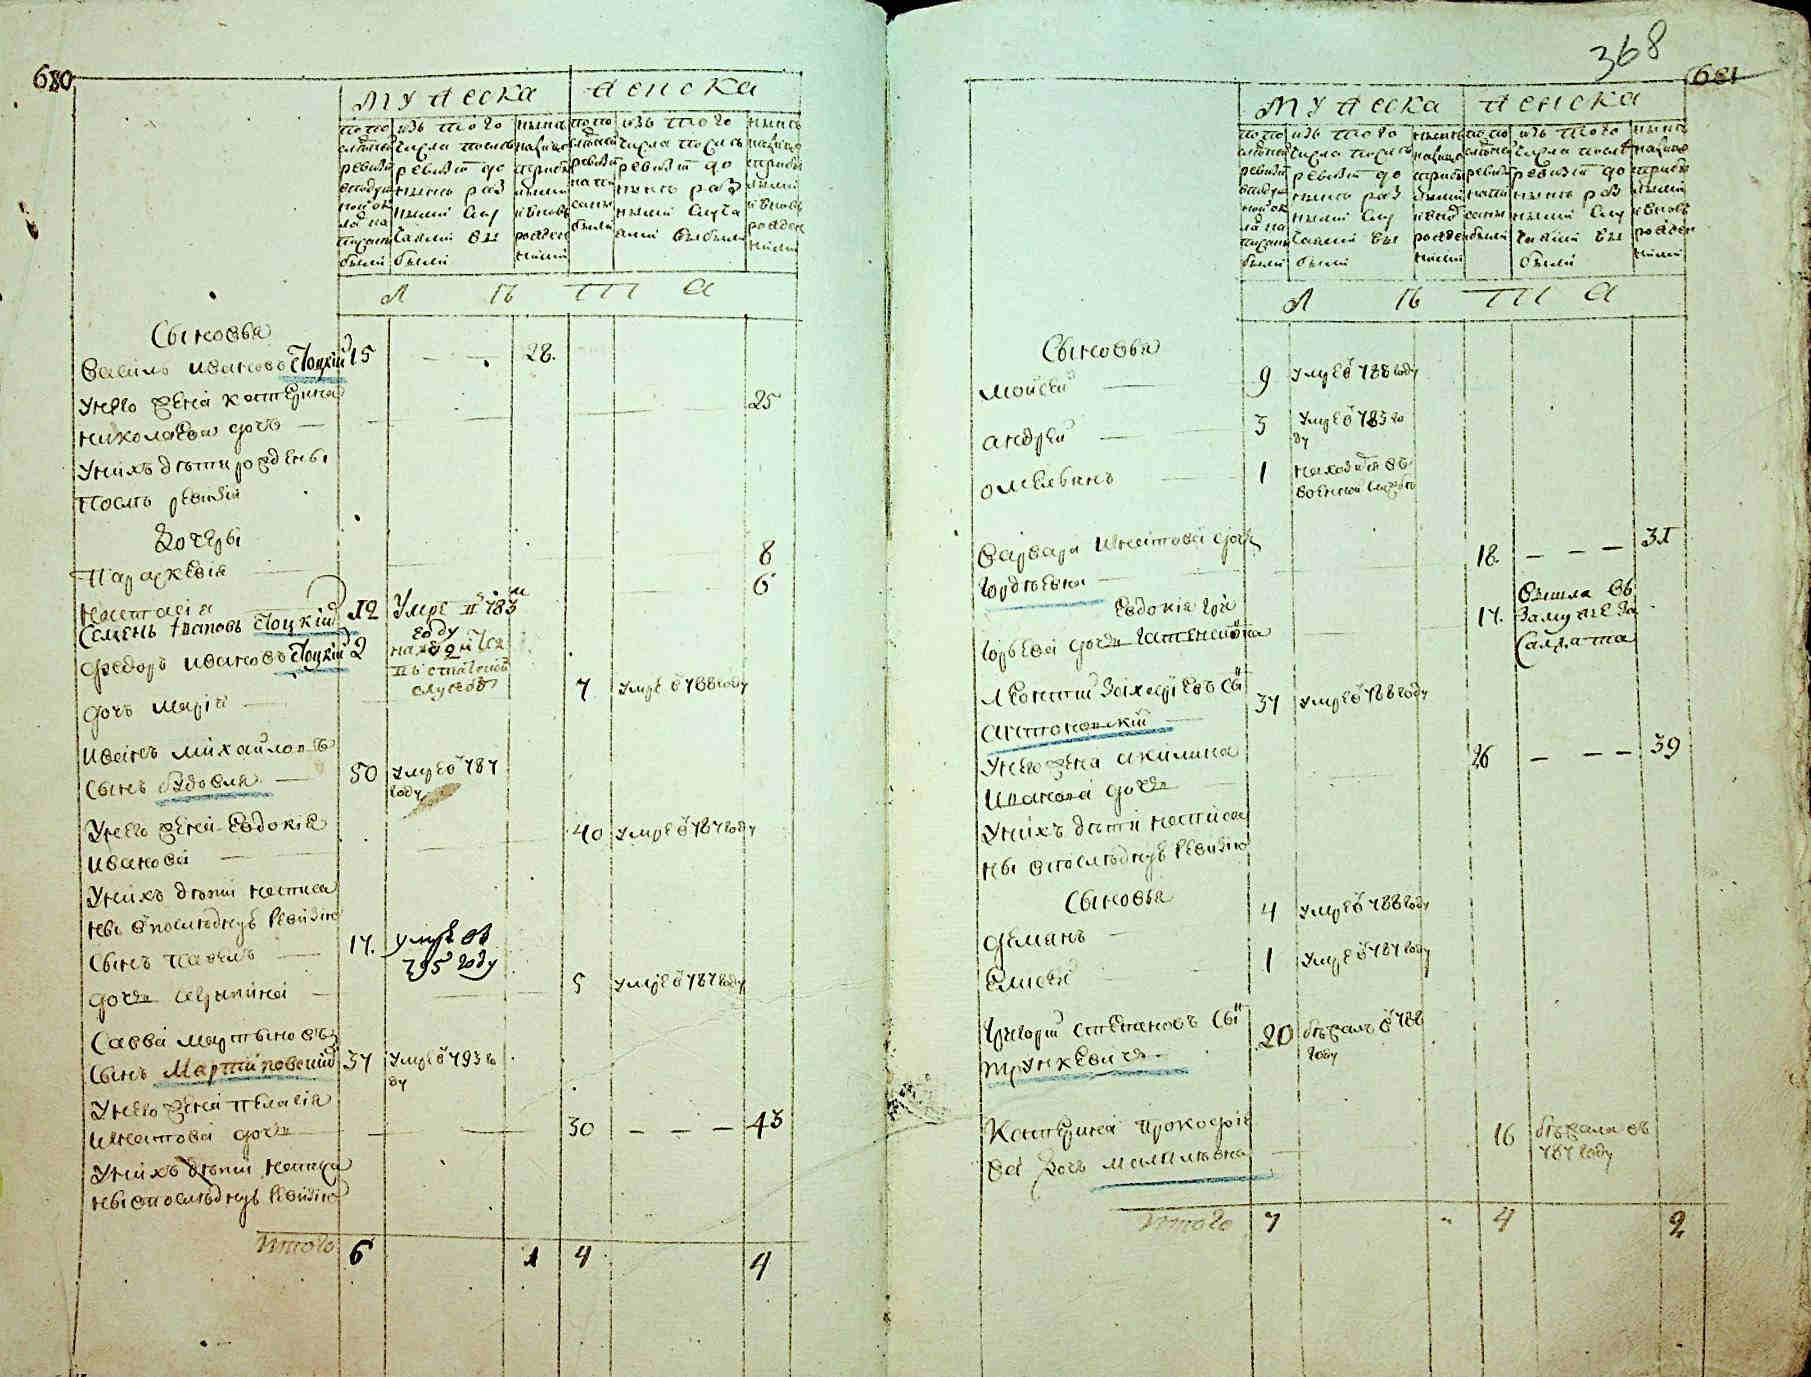 680
мужеска
женска
по по
следней
ревизіи
въ подуш
ной ок
лад на
писаны
были
изъ того
числа послѣ
ревизіи до
нынѣ раз
ными слу
чаями вы
были
нынѣ
налицо
с прибы
лыми
и вновь
рожден
ными
по по
следней
ревизіи
напи
саны
были
изъ того
числа послѣ
ревизіи до
нынѣ раз
ными случа
ями выбыли
нынѣ
налицо
с прибы
лыми
и вновь
рожден
ными
Л Ѣ Т А
Сыновья
Василь Ивановъ 15 — — 28.
У него жена Катерина
Николаева дочь — 25
У нихъ дети рождены
после ревизіи
Дочери
Параскевія 8
Настасія 6
Семенъ Івановъ 12 Умре в 783м
году
Федоръ Ивановъ 2 находится
въ статской
службѣ
дочь Марія — 7 умре в 788 году
Иванъ Михайловъ
сынъ — 50 умре в 787
году
У него жена Евдокія
Иванова — 40 умре в 787 году
У нихъ дети написа
ны в последнюю ревизію
сынъ Павелъ — 17. умре въ
795 году
дочь — 5 умре в 787 году
Савва Мартыновъ
сынъ Мартиновский 37 умре в 793 го
ду
У него жена Пелагія
Игнатова дочь — 30 — — — 43
У нихъ дети написа
ны в последнюю ревизію
Итого 6 1 4 4
368
681
мужеска
женска
по по
следней
ревизіи
въ подуш
ной ок
лад на
писаны
были
изъ того
числа послѣ
ревизіи до
нынѣ раз
ными слу
чаями вы
были
нынѣ
налицо
с прибы
лыми
и вновь
рожден
ными
по по
следней
ревизіи
напи
саны
были
изъ того
числа послѣ
ревизіи до
нынѣ раз
ными слу
чаями вы
были
нынѣ
налицо
с прибы
лыми
и вновь
рожден
ными
Л Ѣ Т А
Сыновья
Мойсей — 9 умре в 788 году
Андрей — — 3 умре в 783 го
ду
Омельянъ — 1 находится въ
военной службѣ
Варвара Игнатова дочь
Гордѣевна — 18. — — — 31
Евдокія Гри
горьева дочь 17. вышла въ
замужже за
салдата
Леонтий Захаріевъ сы
37 умре в 788 году
У него жена Акилина
Иванова дочь 26 — — — 39
У нихъ дети написа
ны в последнюю ревизію
Сыновья
Демянъ — 4 умре в 788 году
Елисей 1 умре в 787 году
Григорій Степановъ сы
Трункевичъ 20 бѣжалъ в 788
году
Катерина Прокофіе
ва дочь 16 бѣжала въ
787 году
Итого 7 " 4 2